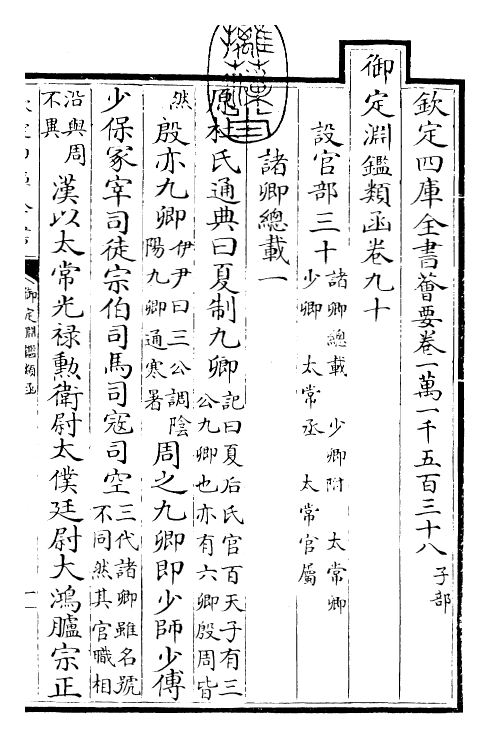 欽定四庫全書薈要卷一萬一千五百三十八 子部
御定淵鑑類函卷九十
設官部三十 諸卿總載 少卿附 太常卿
少卿 太常丞 太常官屬
諸卿總載一
原杜氏通典曰夏制九卿 記曰夏后氏官百天子有三公九卿也亦有六卿殷周皆
然 殷亦九卿 伊尹曰三公調陰陽九卿通寒暑 周之九卿即少師少傅
少保冢宰司徒宗伯司馬司寇司空 三代諸卿雖名號不同然其官職相
沿與周不異 漢以太常光祿勳衛尉太僕廷尉大鴻臚宗正
御定淵鑑類函
一